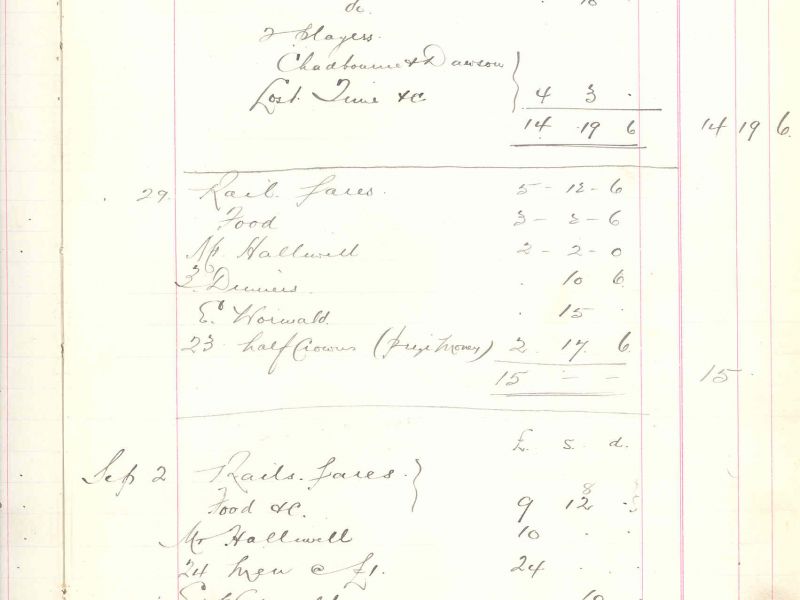 2 players
Chadbourne & Dawson
Lost Time &c 4 3 .
14 19 6 14 19 6
29. Rail fares. 5 - 12 - 6
Food 3 - 3 - 6
Mr Halliwell 2 - 2 - 0
3 Dinners . 10 6
E. Worwald . 15 .
23 half Crowns (prize money) 2 17 6
15 - - 15
£. s. d.
Sep 2 Rails. fares.
Food &c. 9 12
Mr Halliwell 10 . .
24 men @ £1. 24 . .